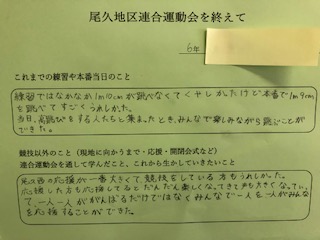 尾久地区連合運動会を終えて
6年
これまでの練習や本番当日のこと
練習ではなかなか1m10cmが跳べなくてくやしかったけど本番で1m9cm
を跳べてすごくうれしかった。
当日、高跳びをする人たちと集まったとき、みんなで楽しみながら跳ぶことが
できた。
競技以外のこと（現地に向かうまで・応援・開閉会式など）
連合運動会を通して学んだこと、これから生かしていきたいこと
尾久西の応援が一番大きくて競技をしている方もうれしかった。
応援した方も応援してるとだんだん楽しくなってきて声も大きくなってい
て、一人一人ががんばるだけではなくみんなで一人一人がみんな
を応援することができた。